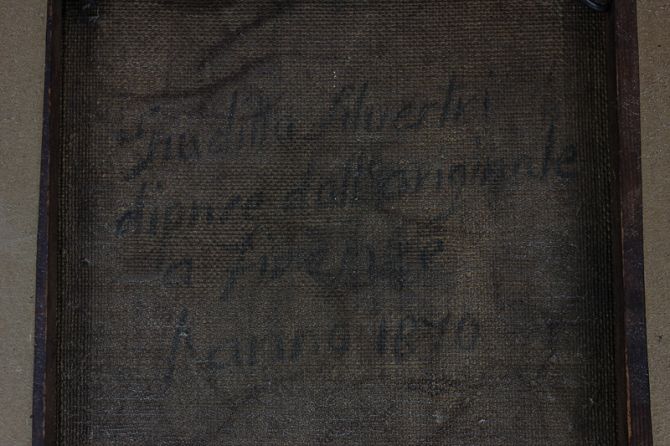 Giuditta Silvestri
dipinse dall'originale
a Firenze
l'anno 1870